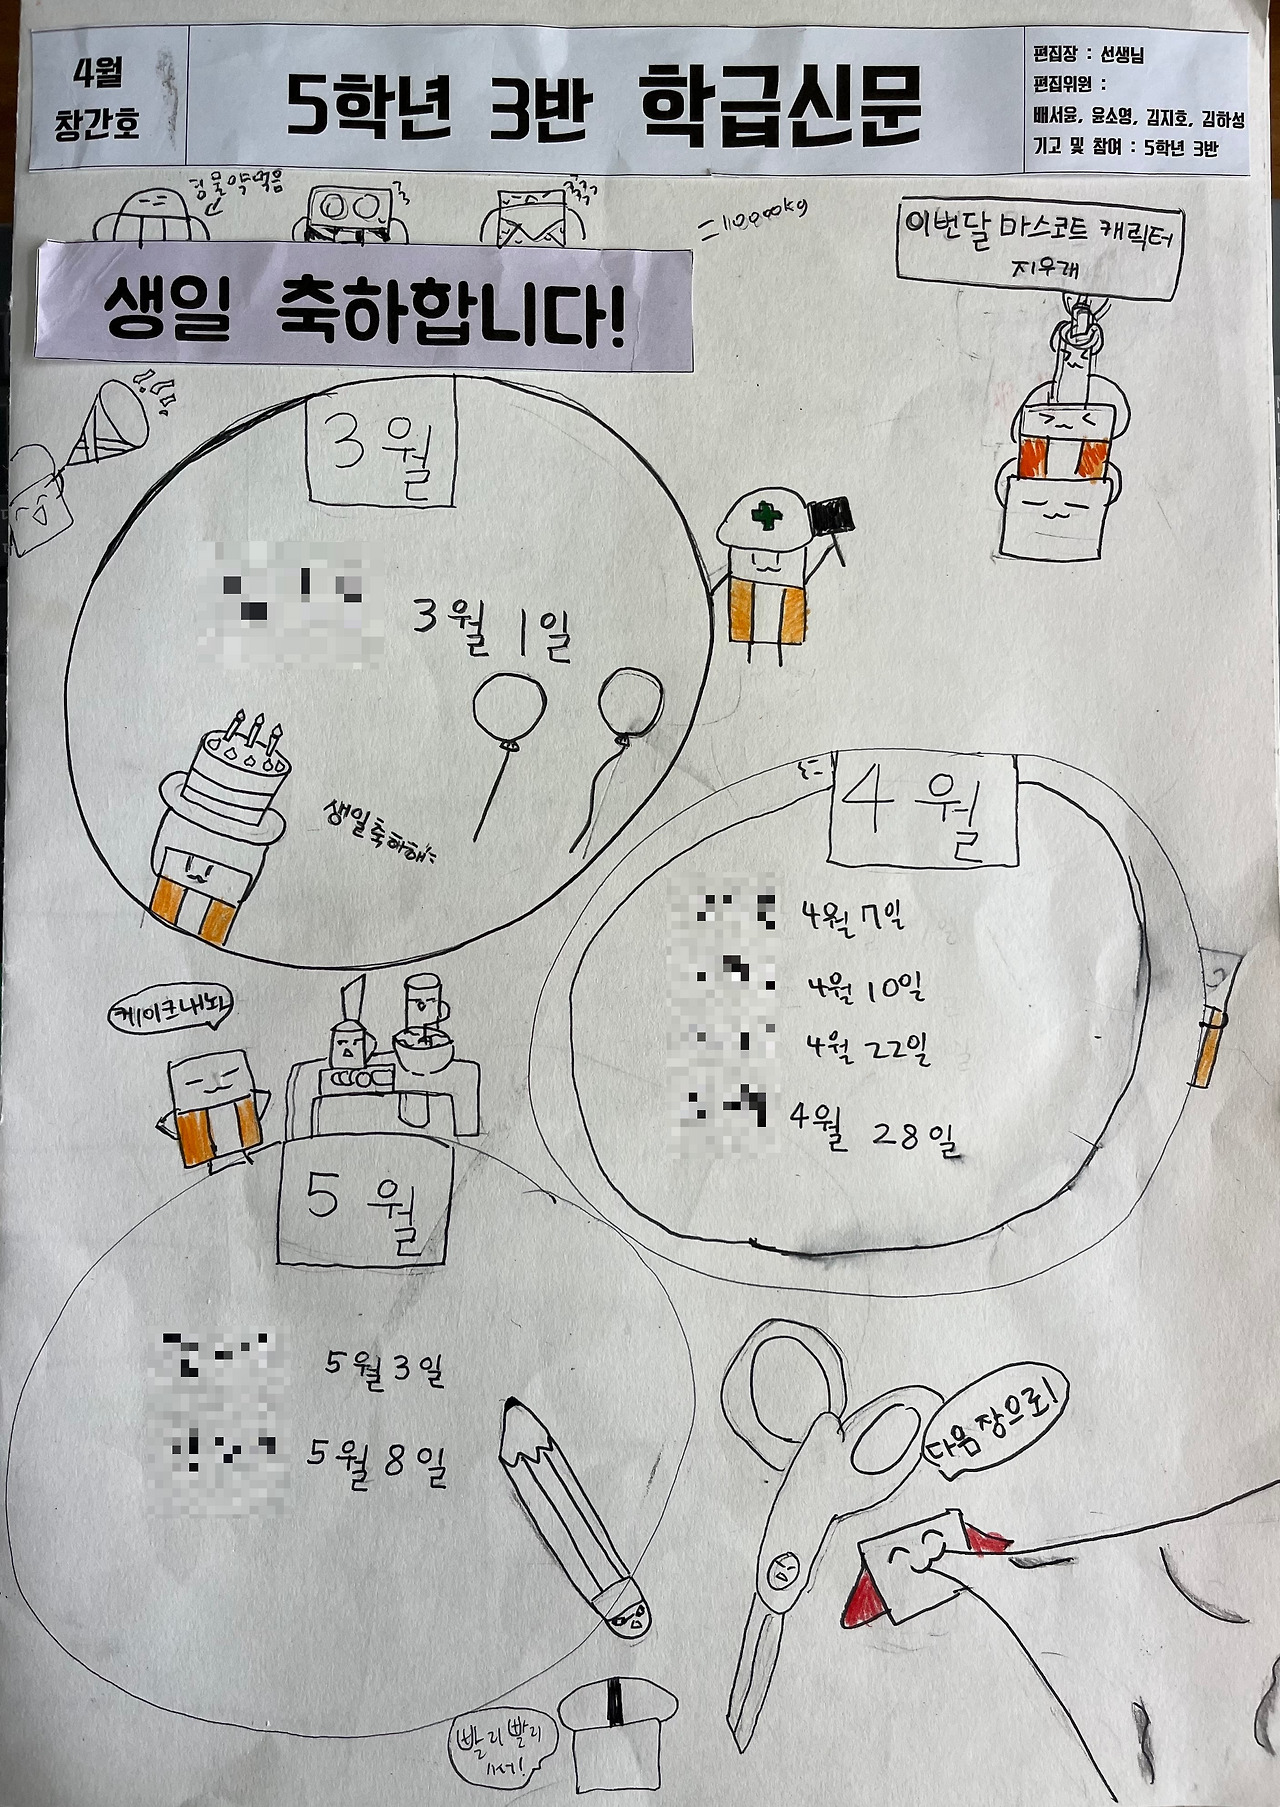 4월
창간호
5학년 3반 학급신문
편집장 : 선생님
편집위원 :
배서윤, 윤소영, 김지호, 김하성
기고 및 참여 : 5학년 3반
이번달 마스코트 캐릭터
지우개
생일 축하합니다!
3월
3월 1일
생일축하해
4월
4월 7일
4월 10일
4월 22일
4월 28일
케이크내놔
5월
5월 3일
5월 8일
다음장으로!
빨리빨리